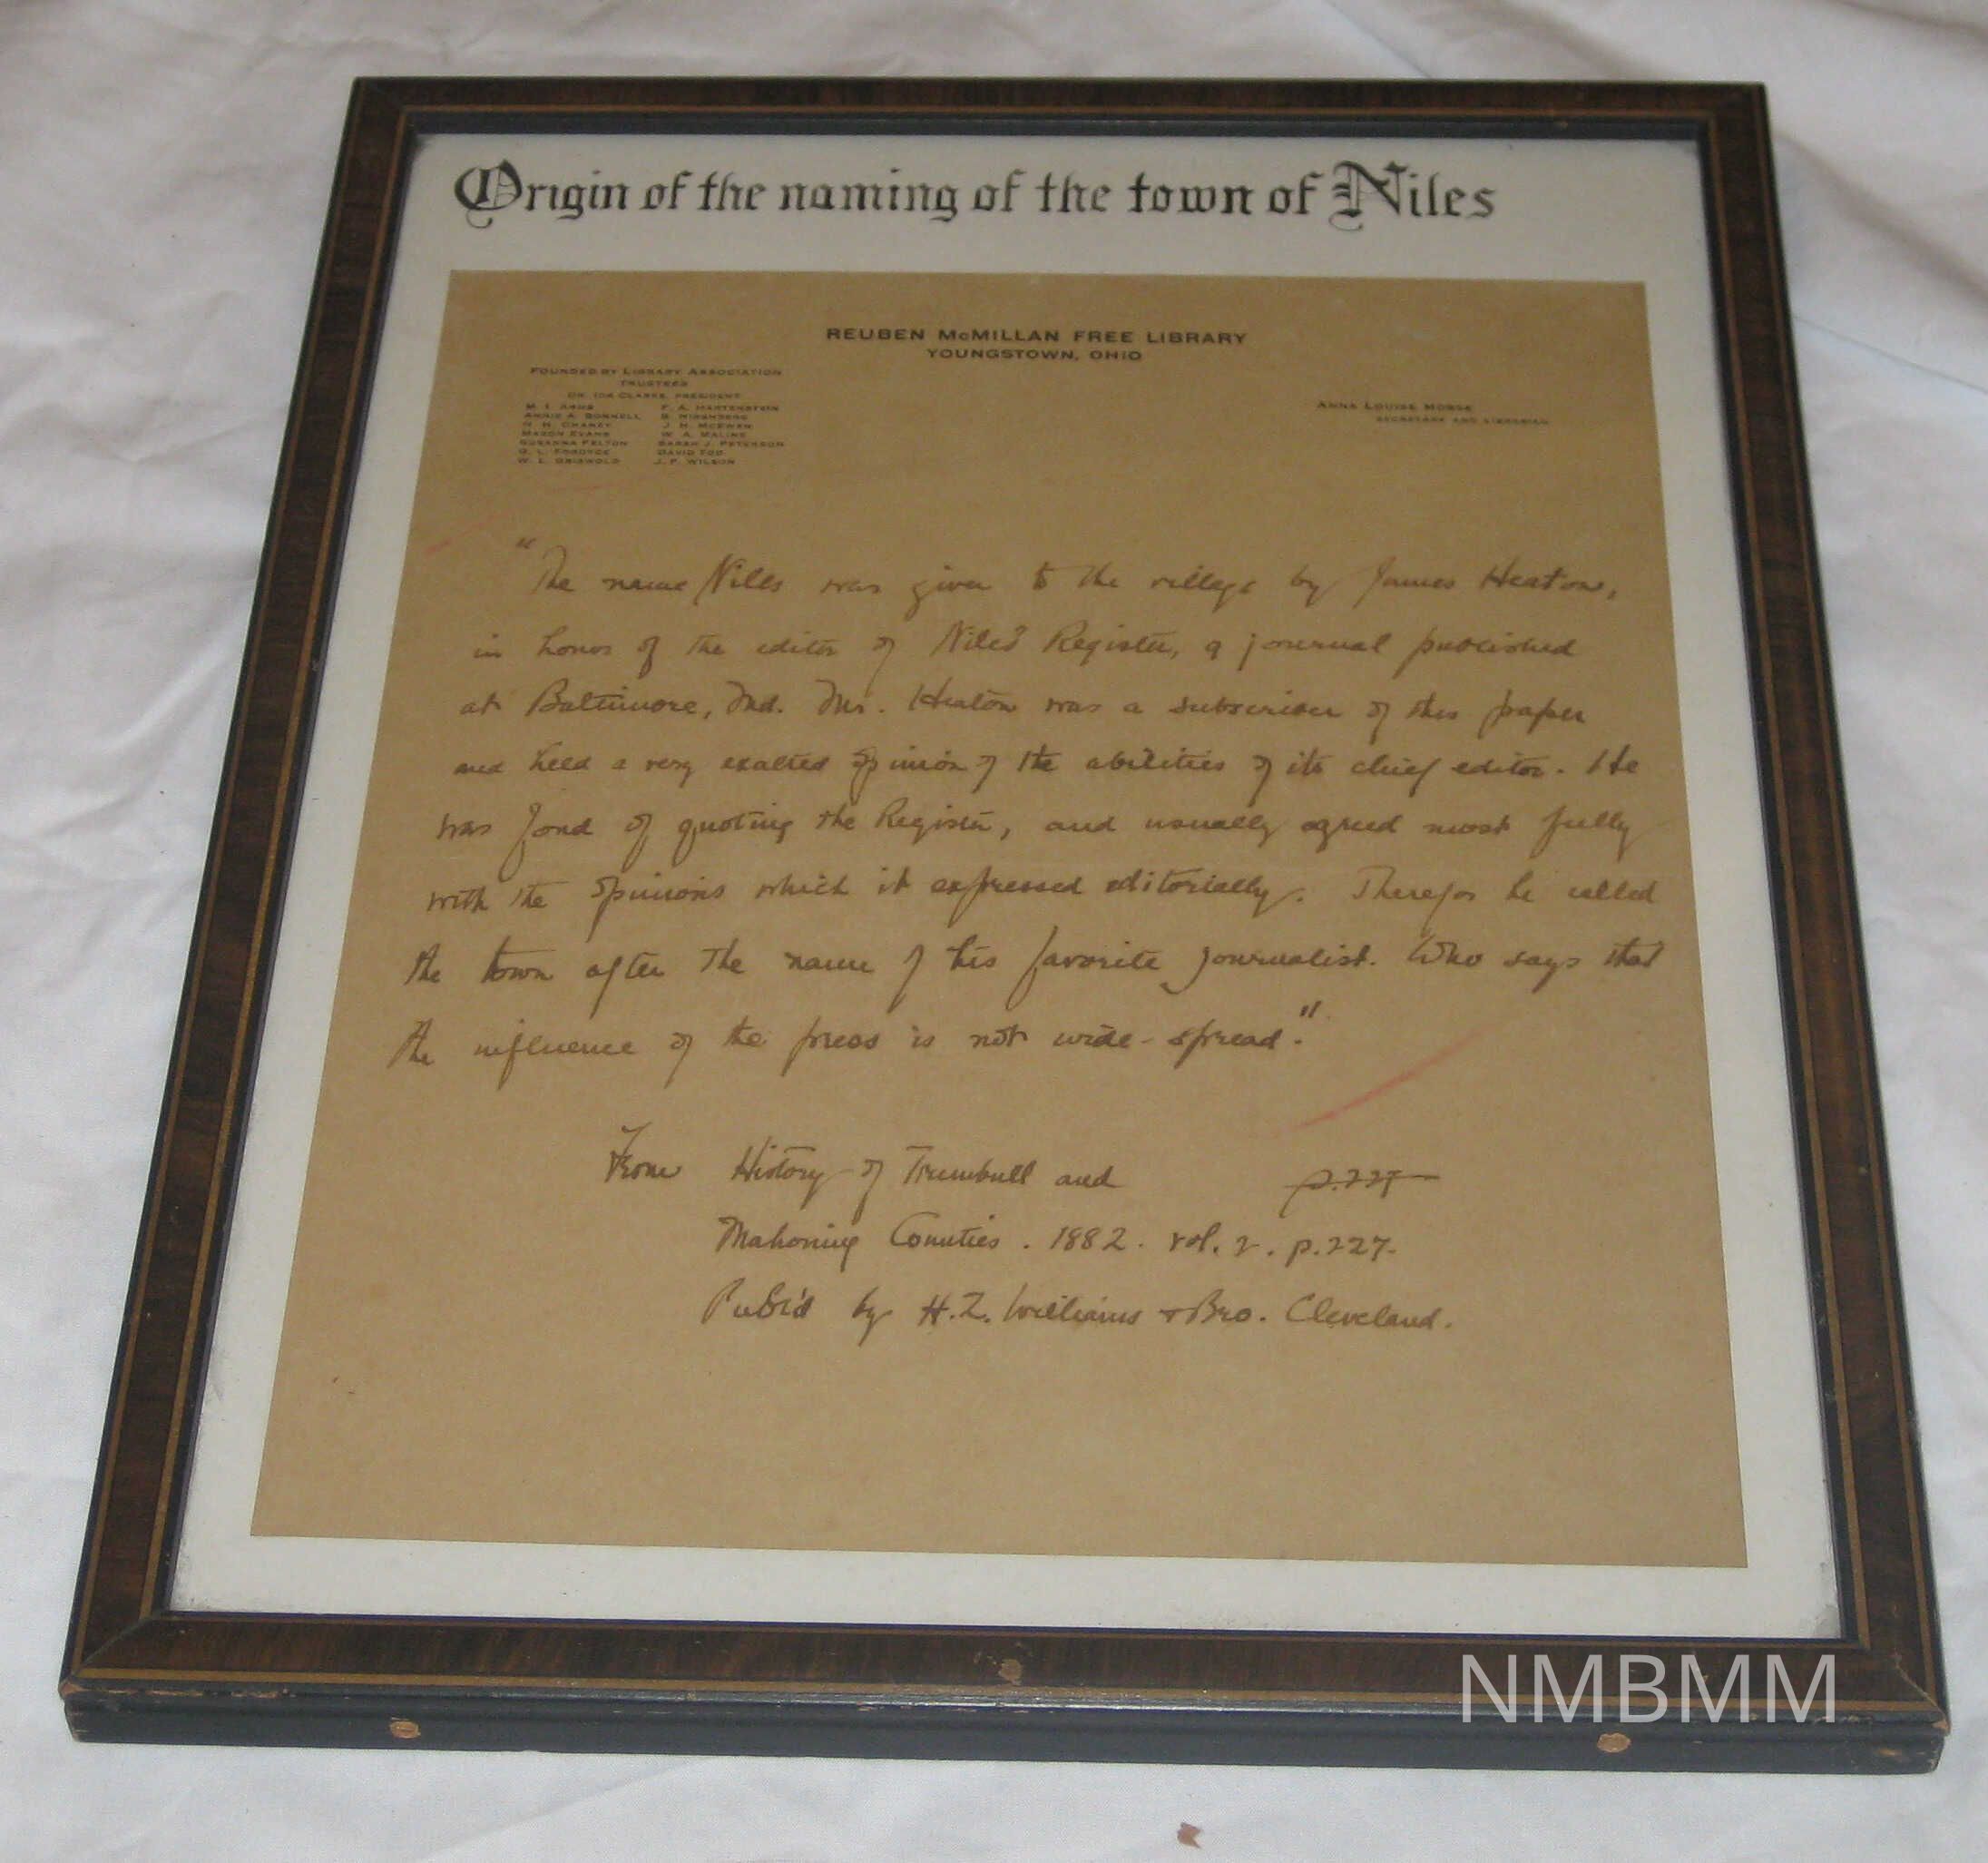 Origin of the naming of the town of Niles
REUBEN McMILLAN FREE LIBRARY
YOUNGSTOWN, OHIO
FOUNDED BY LIBRARY ASSOCIATION
TRUSTEES
DR. IDA CLARKE, PRESIDENT
M. I. ARMS F. A. HARTENSTEIN
ANNIE A. BONNELL B. HIRSHBERG
H. H. CHANEY J. H. McEWEN
MASON EVANS W. A. MALINE
SUSANNA FELTON SARAH J. PETERSON
G. L. FORDYCE DAVID TOD
W. E. GRISWOLD J. P. WILSON
ANNA LOUISE MORSE
SECRETARY AND LIBRARIAN
"The name Niles was given to the village by James Heaton,
in honor of the editor of Niles' Register, a journal published
at Baltimore, Md. Mr. Heaton was a subscriber of this paper
and held a very exalted opinion of the abilities of its chief editor. He
was fond of quoting the Register, and usually agreed most fully
with the opinions which it expressed editorially. Therefor he called
the town after the name of his favorite journalist. Who says that
the influence of the press is not wide-spread."
From History of Trumbull and
Mahoning Counties. 1882. vol. 2. p.227.
Publ'd by H.Z. Williams & Bro. Cleveland.
NMBMM